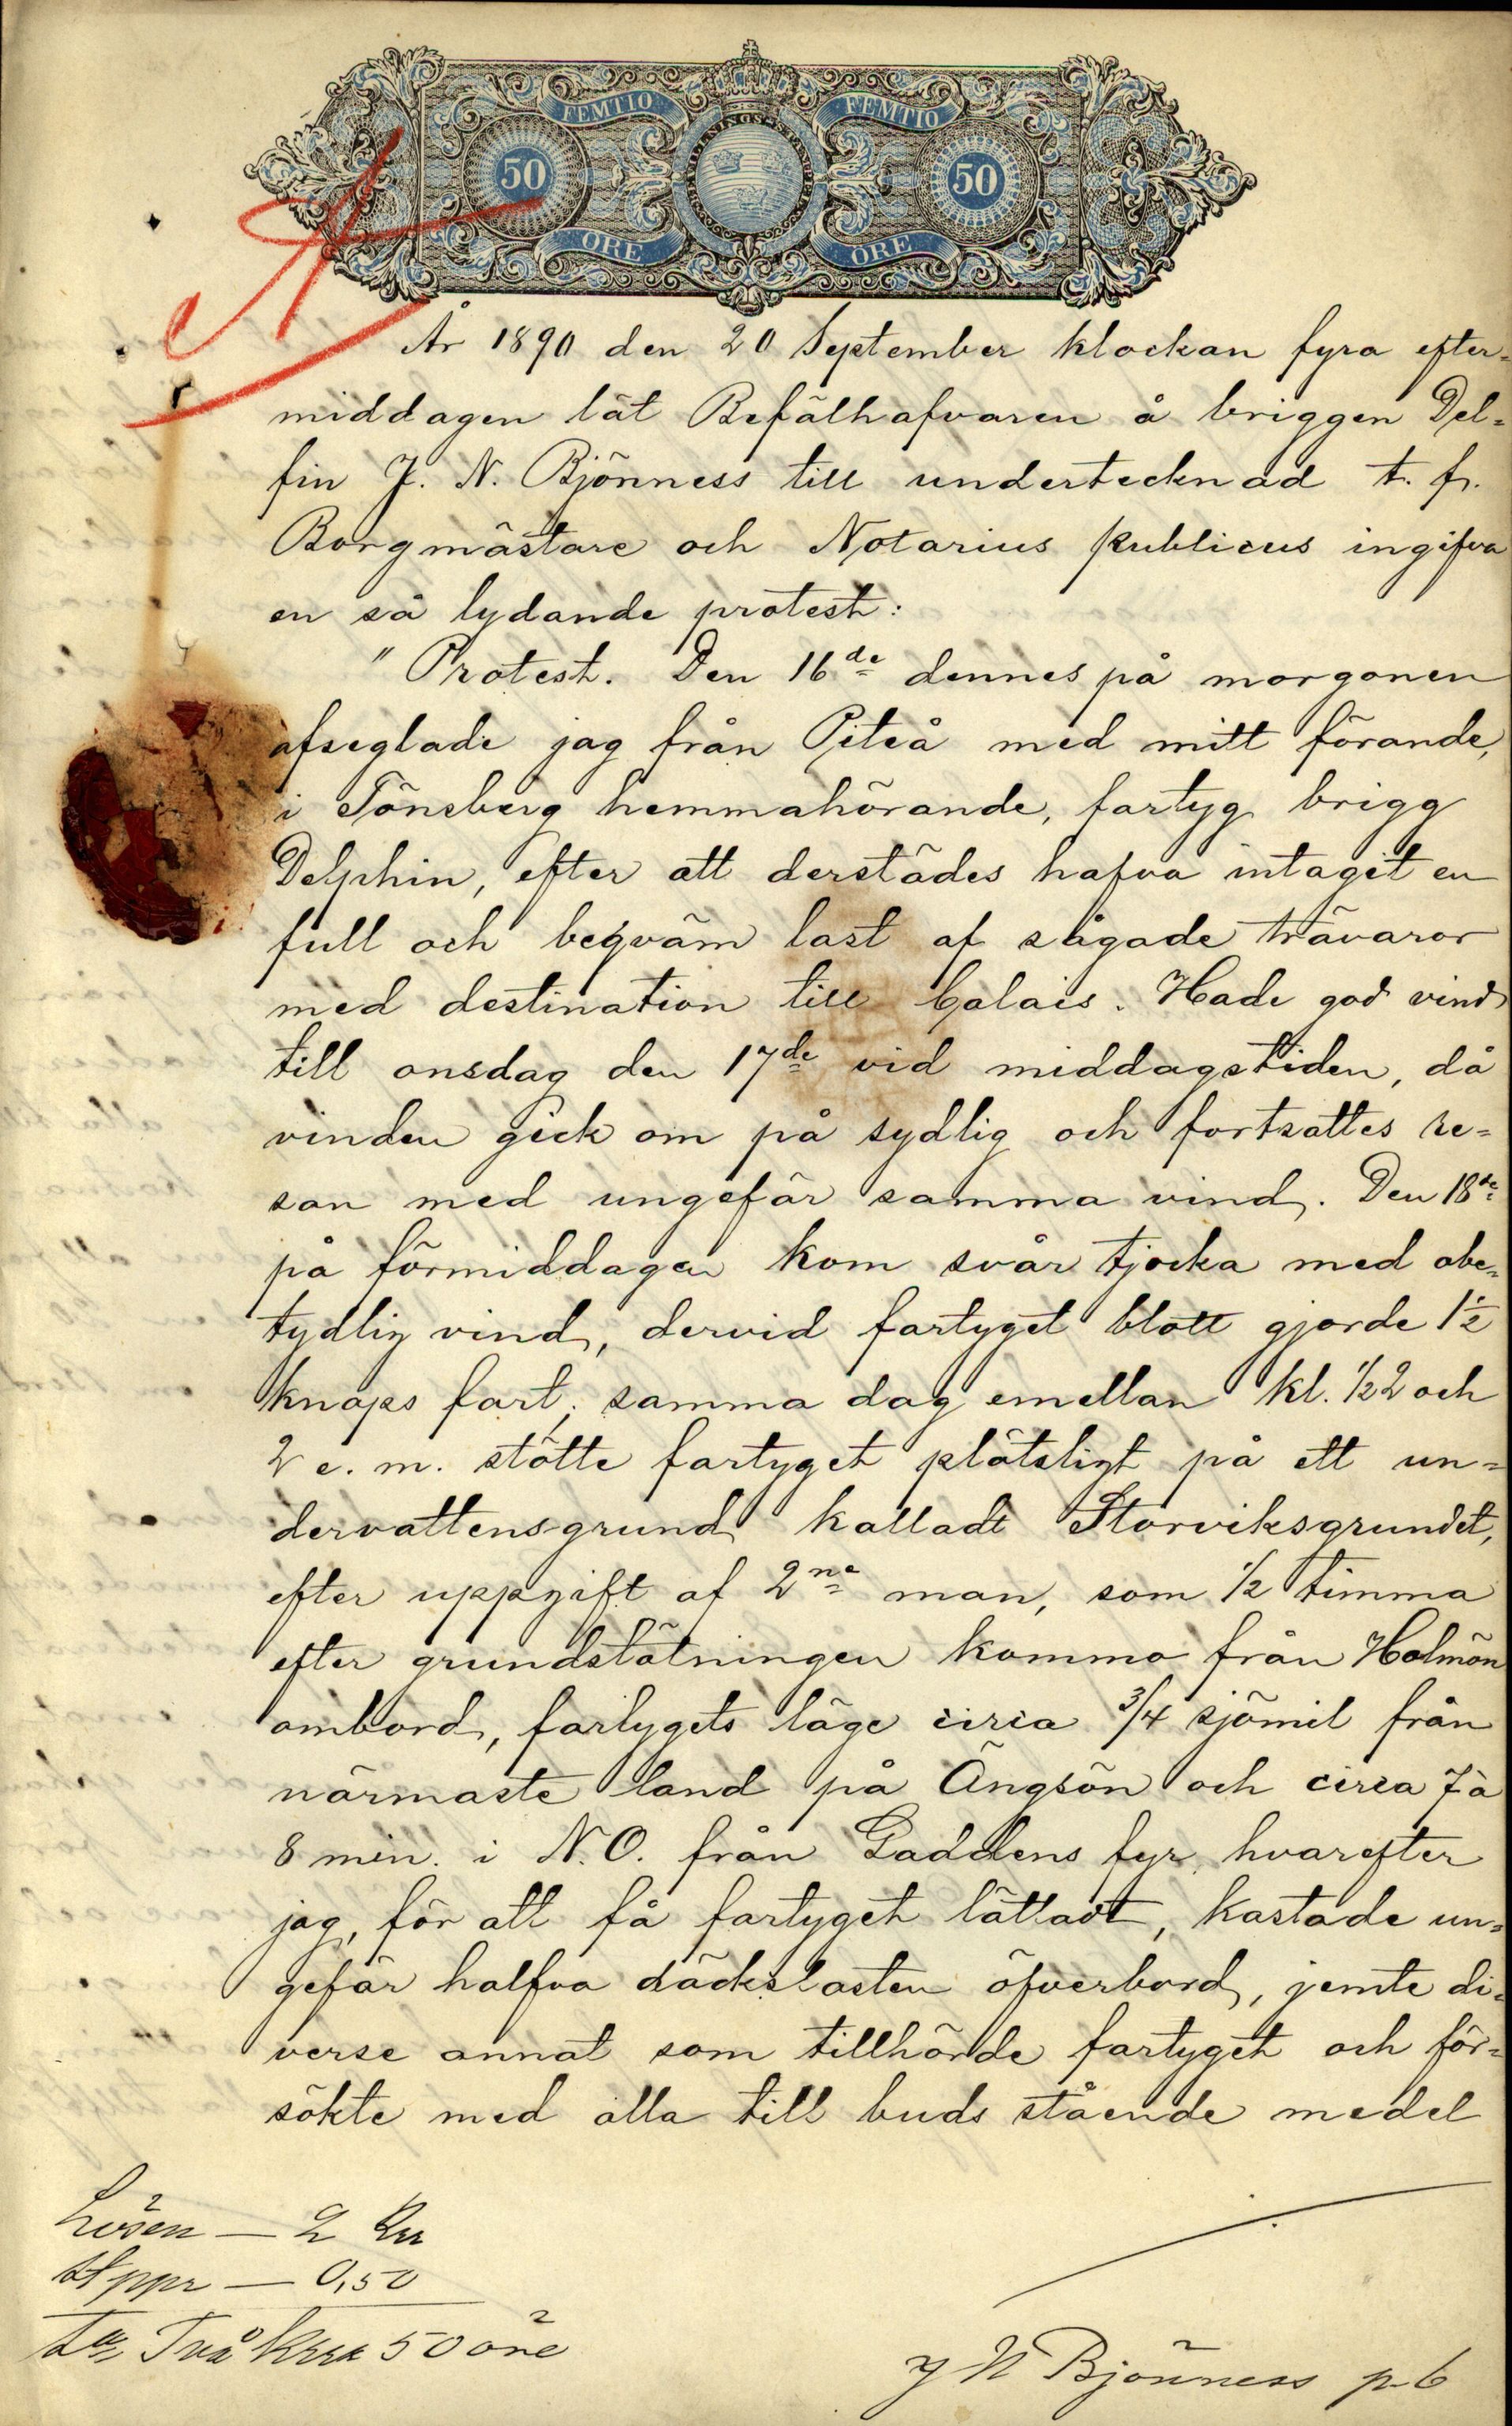 FEMTIO FEMTIO
50 50
ÖRE ÖRE
År 1890 den 20 September klockan fyra efter=
middagen lät Befälhafvaren å briggen Del=
fin J. N. Bjönness till undertecknad t. f.
Borgmästare och Notarius Publicus ingifva
en så lydande protest:
" Protest. Den 16de dennes på morgonen
afseglade jag från Piteå med mitt förande,
i Tönsberg hemmahörande, fartyg brigg
Delphin, efter att derstädes hafva intagit en
full och beqväm last af sågade trävaror
med destination till Calais. Hade god vind
till onsdag den 17de vid middagstiden, då
vinden gick om på sydlig och fortsattes re=
san med ungefär samma vind. Den 18de
på förmiddagen kom svår tjocka med obe=
tydlig vind, dervid fartyget blott gjorde 1½
knops fart; samma dag emellan kl. ½2 och
2 e. m. stötte fartyget plötsligt på ett un=
dervattensgrund kalladt Storviksgrundet,
efter uppgift af 2ne man, som ½ timma
efter grundstötningen kommo från Holmön
ombord, fartygets läge circa 3/4 sjömil från
närmaste land på Ängsön och circa 7 à
8 min. i N.O. från Gaddens fyr, hvarefter
jag, för att få fartyget lättadt, kastade un=
gefär halfva däckslasten öfverbord, jemte di=
verse annat som tillhörde fartyget och för=
sökte med alla till buds stående medel
Lösen — 2 Kr
Stppr — 0,50
Två Kr 50 öre
J N Bjönness